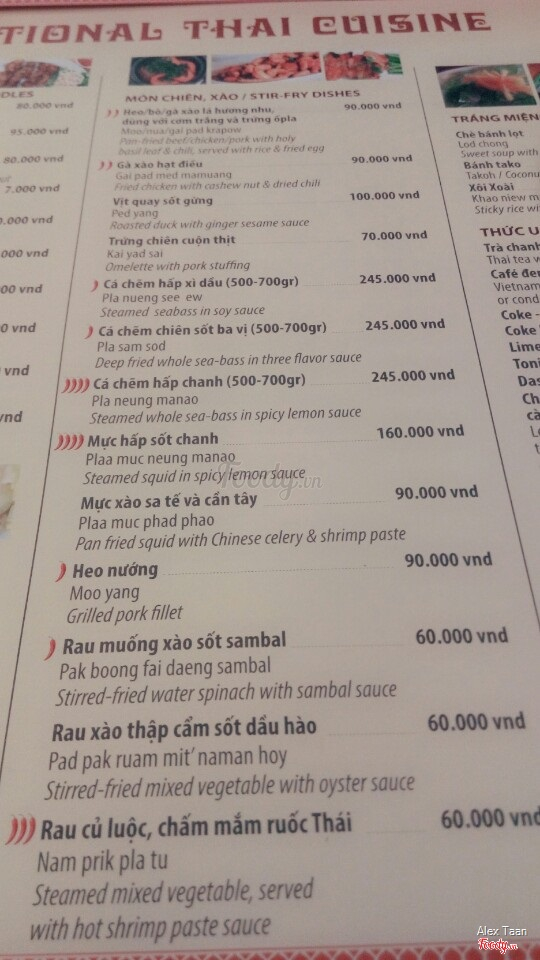 TIONAL THAI CUISINE
DLES
80.000 vnd
95.000 vnd
80.000 vnd
7.000 vnd
0.000 vnd
000 vnd
00 vnd
0 vnd
vnd
vnd
MÓN CHIÊN, XÀO / STIR-FRY DISHES
Heo/bò/gà xào lá hương nhu, 90.000 vnd
dùng với cơm trắng và trứng ốpla
Moo/nua/gai pad krapow
Pan-fried beef/chicken/pork with holy
basil leaf & chili, served with rice & fried egg
Gà xào hạt điều 90.000 vnd
Gai pad med mamuang
Fried chicken with cashew nut & dried chili
Vịt quay sốt gừng 100.000 vnd
Ped yang
Roasted duck with ginger sesame sauce
Trứng chiên cuộn thịt 70.000 vnd
Kai yad sai
Omelette with pork stuffing
Cá chẽm hấp xì dầu (500-700gr) 245.000 vnd
Pla nueng see ew
Steamed seabass in soy sauce
Cá chẽm chiên sốt ba vị (500-700gr) 245.000 vnd
Pla sam sod
Deep fried whole sea-bass in three flavor sauce
Cá chẽm hấp chanh (500-700gr) 245.000 vnd
Pla neung manao
Steamed whole sea-bass in spicy lemon sauce
Mực hấp sốt chanh 160.000 vnd
Plaa muc neung manao
Steamed squid in spicy lemon sauce
Mực xào sa tế và cần tây 90.000 vnd
Plaa muc phad phao
Pan fried squid with Chinese celery & shrimp paste
Heo nướng 90.000 vnd
Moo yang
Grilled pork fillet
Rau muống xào sốt sambal 60.000 vnd
Pak boong fai daeng sambal
Stirred-fried water spinach with sambal sauce
Rau xào thập cẩm sốt dầu hào 60.000 vnd
Pad pak ruam mit' naman hoy
Stirred-fried mixed vegetable with oyster sauce
Rau củ luộc, chấm mắm ruốc Thái 60.000 vnd
Nam prik pla tu
Steamed mixed vegetable, served
with hot shrimp paste sauce
TRÁNG MIỆN
Chè bánh lọt
Lod chong
Sweet soup with
Bánh tako
Takoh / Coconu
Xôi Xoài
Khao niew m
Sticky rice wi
THỨC U
Trà chanh
Thai tea w
Café đen
Vietnam
or cond
Coke -
Coke
Lime
Toni
Das
Ch
cà
Le
t
Foody.vn
Alex Taan
Foody.vn